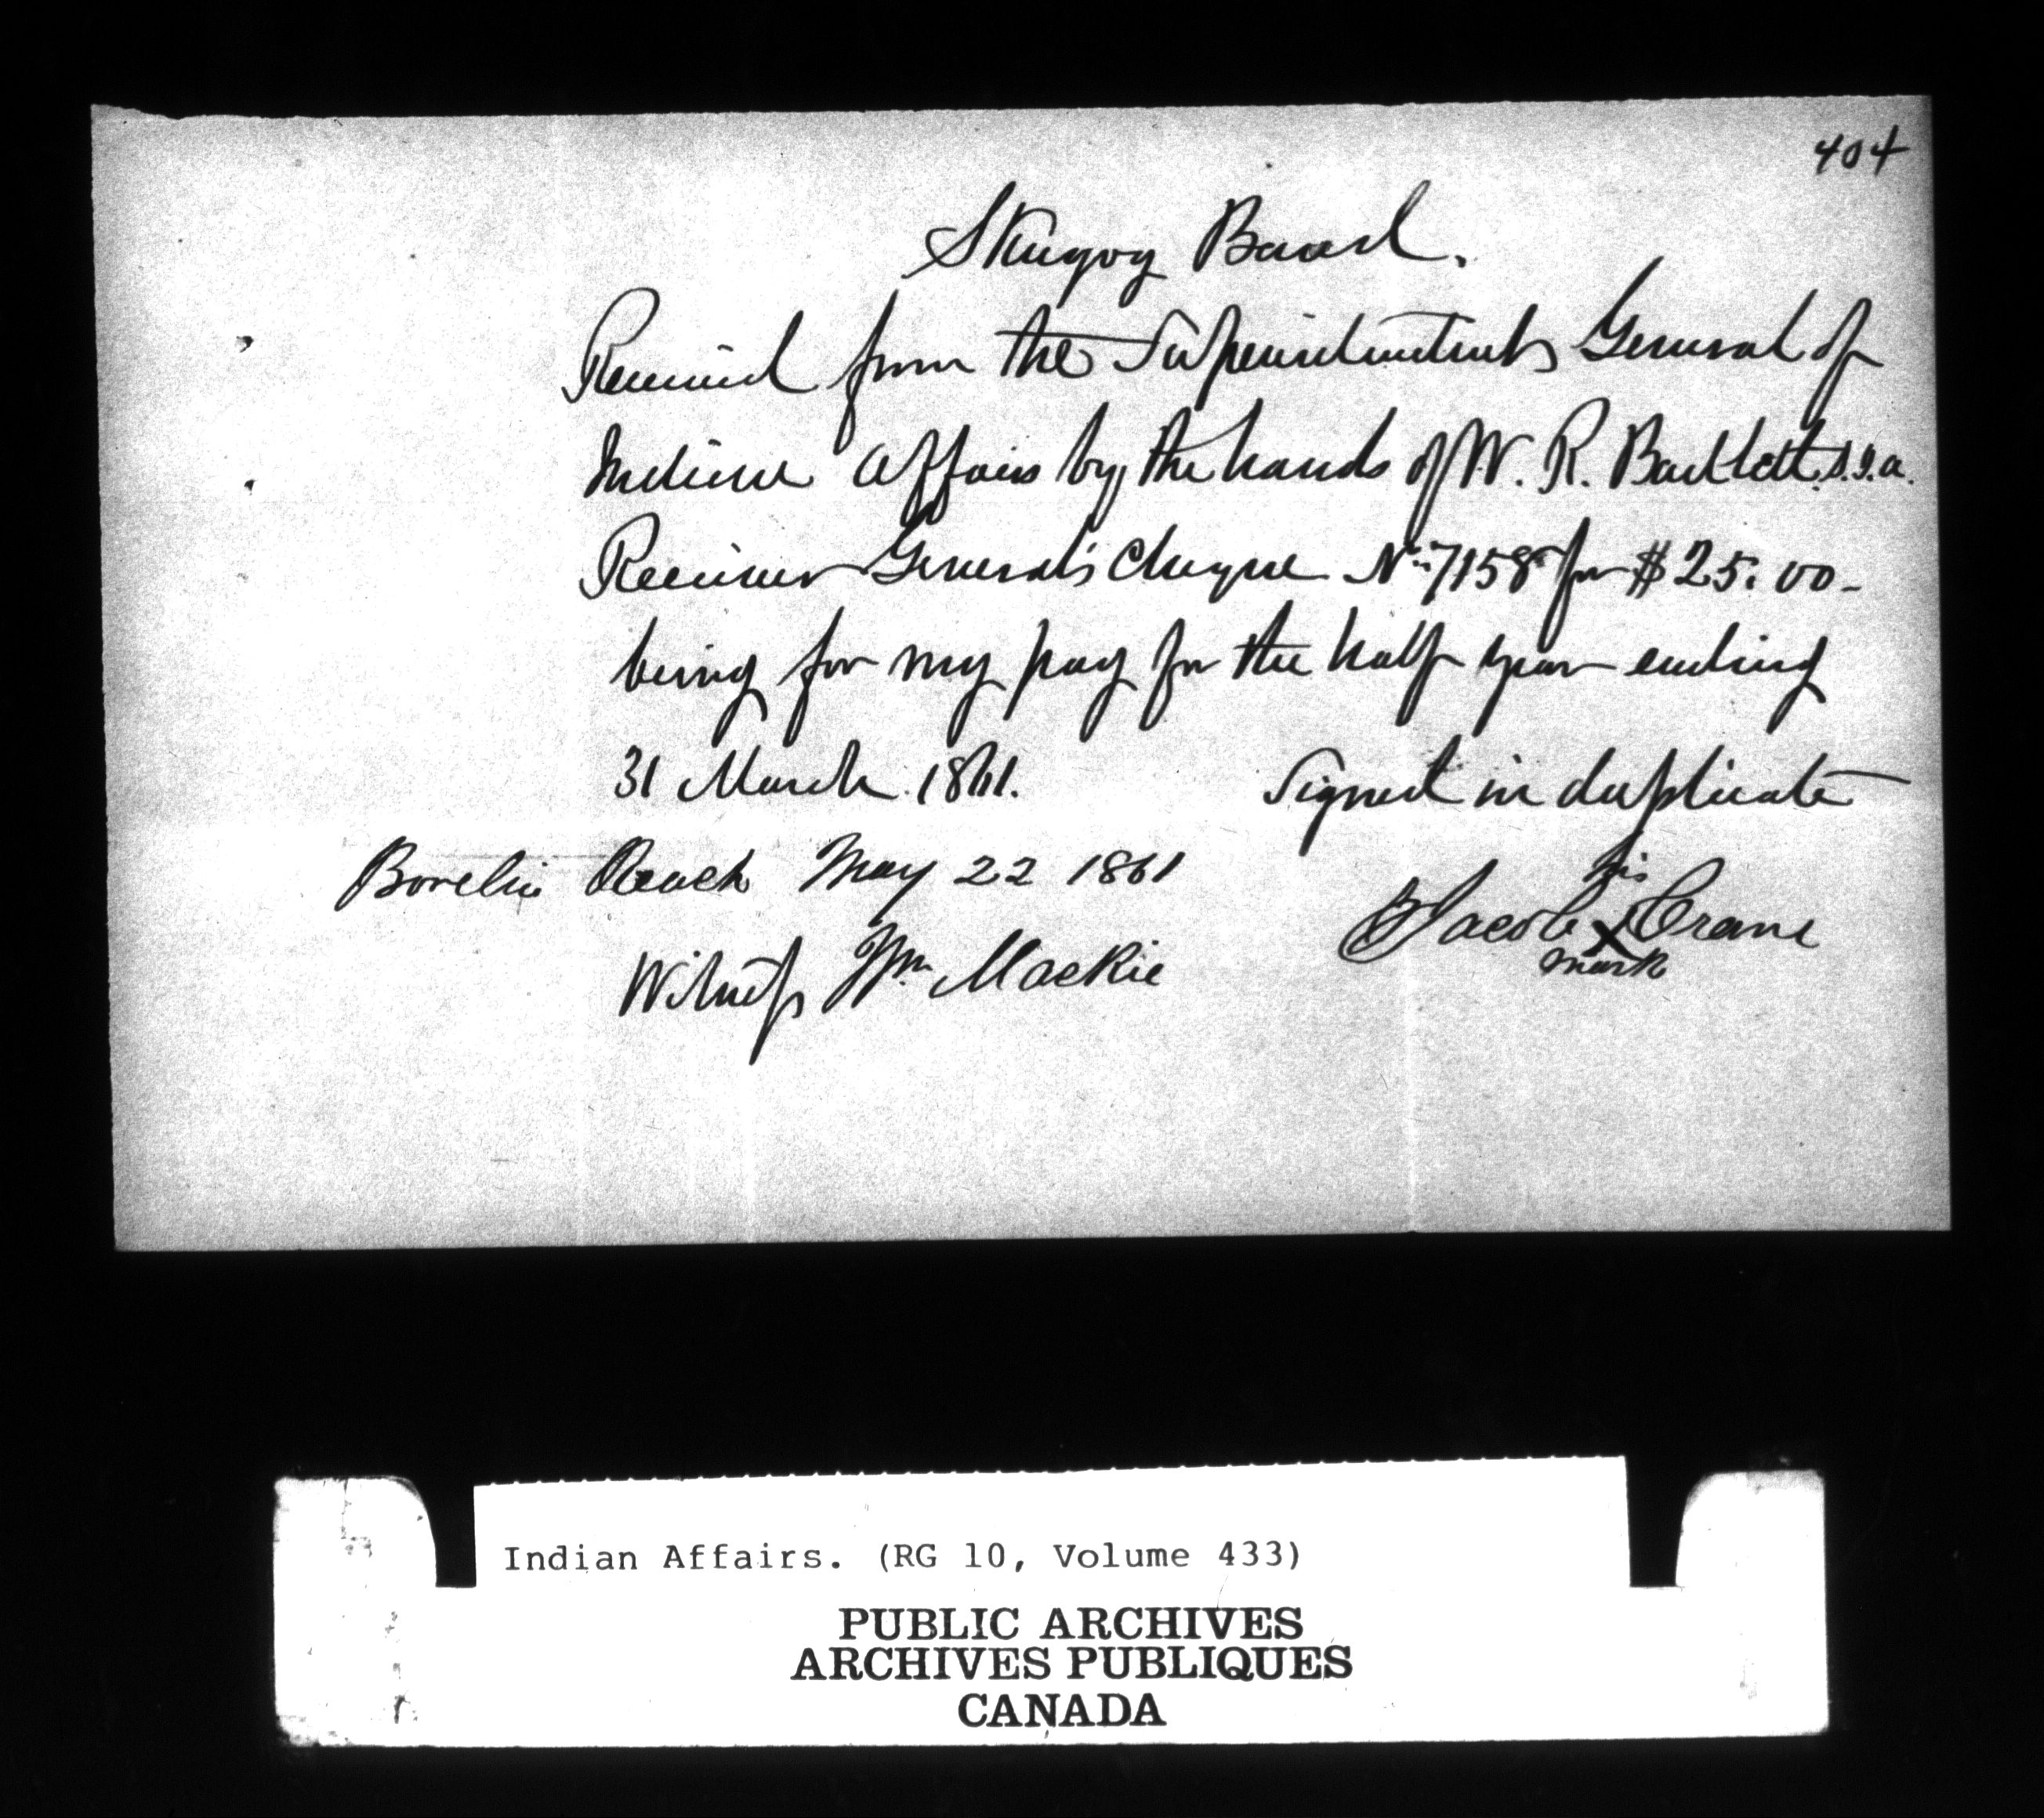 404
Skugog Band.
Received from the Superintendent General of
Indian Affairs by the hands of W. R. Bartlett S.I.A.
Receiver General's Cheque No 7158 for $25.00-
being for my pay for the half year ending
31 March 1861. Signed in duplicate
Borelia Reach May 22 1861
his
Jacob X Crane
mark
Witness Wm Mackie
Indian Affairs. (RG 10, Volume 433)
PUBLIC ARCHIVES
ARCHIVES PUBLIQUES
CANADA